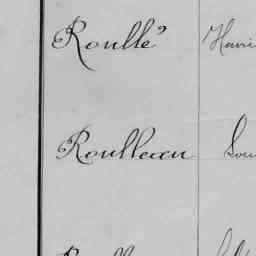 Roullé Henri
Roulleau Lou